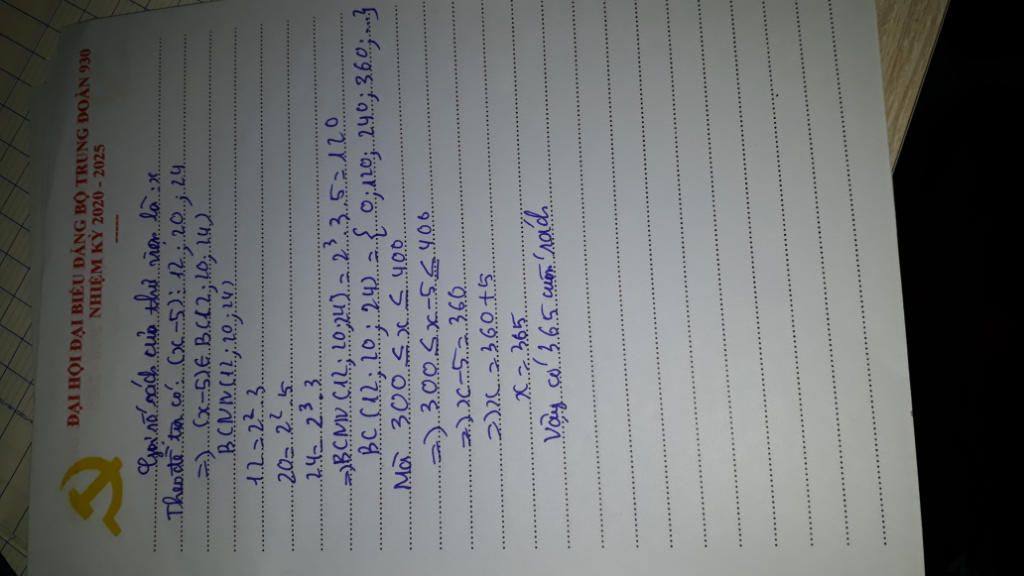 ĐẠI HỘI ĐẠI BIỂU ĐẢNG BỘ TRUNG ĐOÀN 930
NHIỆM KỲ 2020 - 2025
Gọi số sách của thư viện là : x
Theo đề ta có: (x-5) : 12 ; 20 ; 24
=> (x-5) ∈ B(12; 20; 24)
BCNN(12; 20; 24)
12 = 2² . 3
20 = 2² . 5
24 = 2³ . 3
=> BCNN(12; 20; 24) = 2³ . 3 . 5 = 120
BC(12; 20; 24) = { 0; 120; 240; 360; ...}
Mà 300 ≤ x ≤ 400
=> 300 ≤ x-5 ≤ 400
=> x-5 = 360
=> x = 360 + 5
x = 365
Vậy có 365 cuốn sách